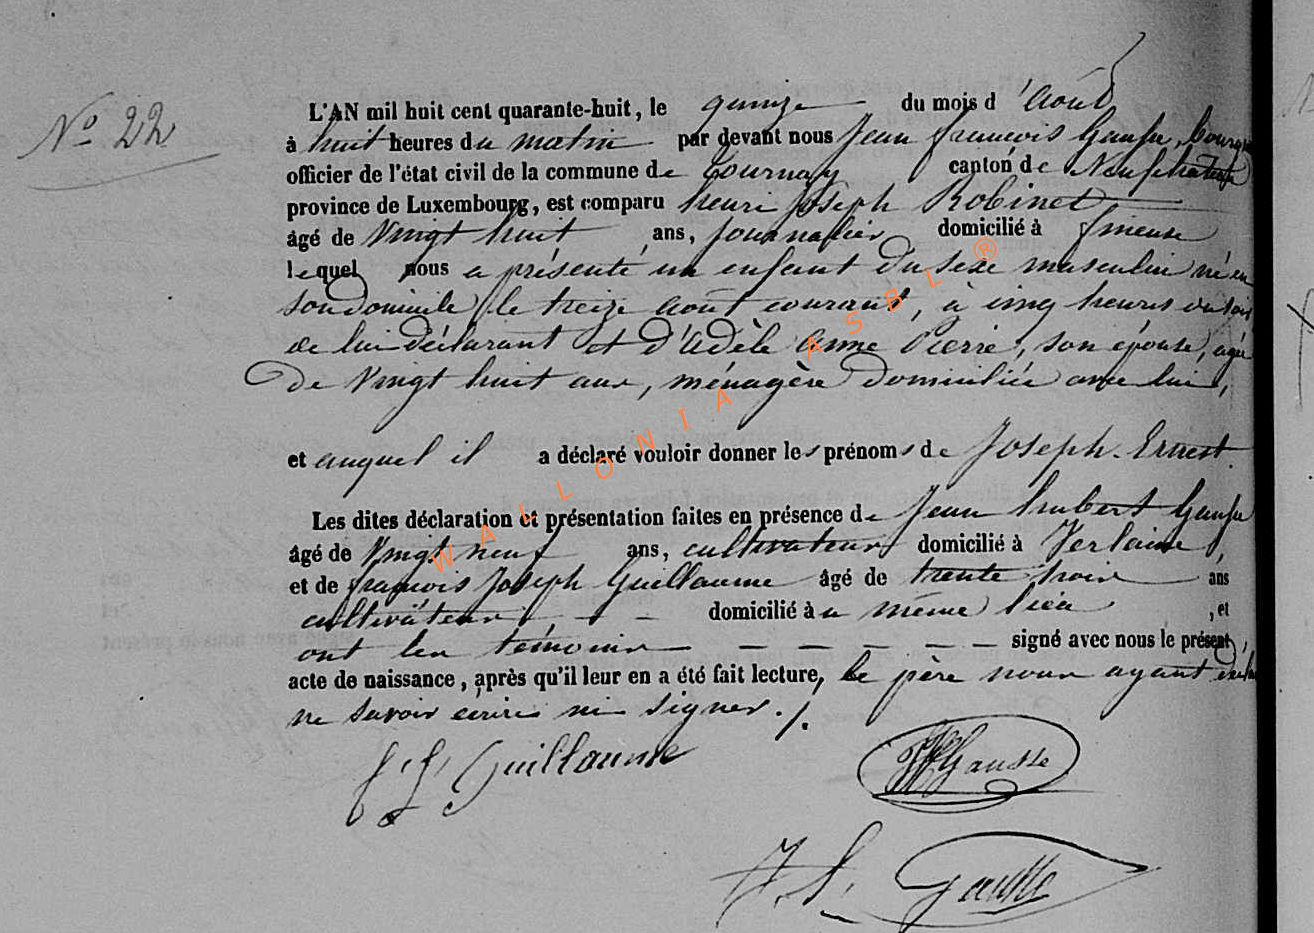 No 22
L'AN mil huit cent quarante-huit, le quinze du mois d'août
à huit heures du matin par devant nous Jean françois Gausse, bourgm
officier de l'état civil de la commune de Tournay canton de Neufchâteau
province de Luxembourg, est comparu henri Joseph Robinet
âgé de vingt huit ans, journalier domicilié à
lequel nous a présenté un enfant du sexe masculin né en
son domicile le treize août courant, à cinq heures du soir
de lui déclarant et d'Adèle Anne Pierre, son épouse, agée
De vingt huit ans, ménagère domiciliée avec lui,
et auquel il a déclaré vouloir donner les prénoms de Joseph-Ernest.
Les dites déclaration et présentation faites en présence de Jean hubert Gausse
âgé de vingt neuf ans, cultivateur domicilié à Verlaine,
et de françois Joseph Guillaume âgé de trente trois ans
cultivateur, - - domicilié au même lieu, et
ont les témoins - - - - - - signé avec nous le présent,
acte de naissance, après qu'il leur en a été fait lecture, le père nous ayant déclaré
ne savoir écrire ni signer./.
f. J. Guillaume
JHGausse
J. f. Gausse
WALLONIA ASBL ®